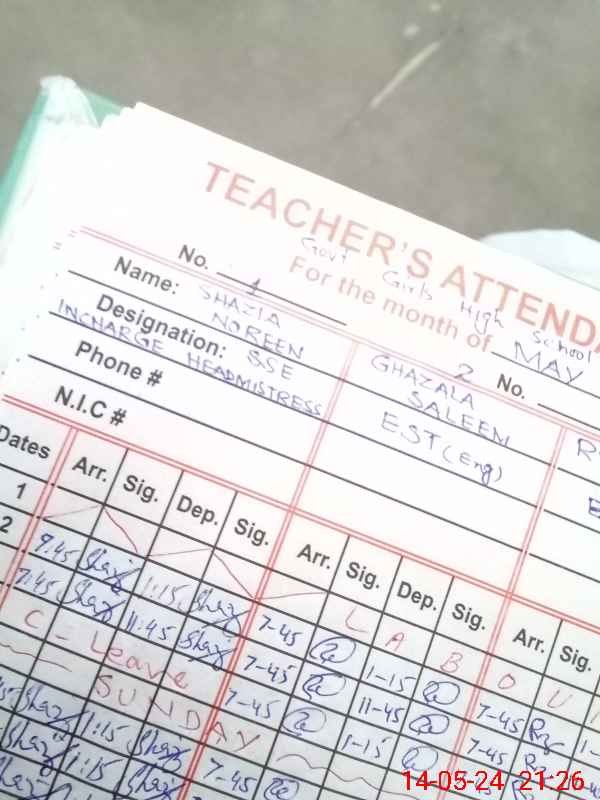 TEACHER'S ATTENDA
Govt Girls High School
For the month of MAY
No. 1
Name: SHAZIA NOREEN
Designation: SSE
INCHARGE HEADMISTRESS
Phone #
N.I.C #
2 No.
GHAZALA
SALEEM
EST (Eng)
Dates Arr. Sig. Dep. Sig. Arr. Sig. Dep. Sig. Arr. Sig.
1 L A B O U
2 7:45 Shaz 1:15 Shaz 7-45 1-15 7-45
7:45 Shaz 11:45 Shaz 7-45 11-45 7-45
C - Leave 7-45 1-15
SUNDAY
Shaz 1:15 Shaz 7-45
Shaz 1:15 Shaz
14-05-24 21:26